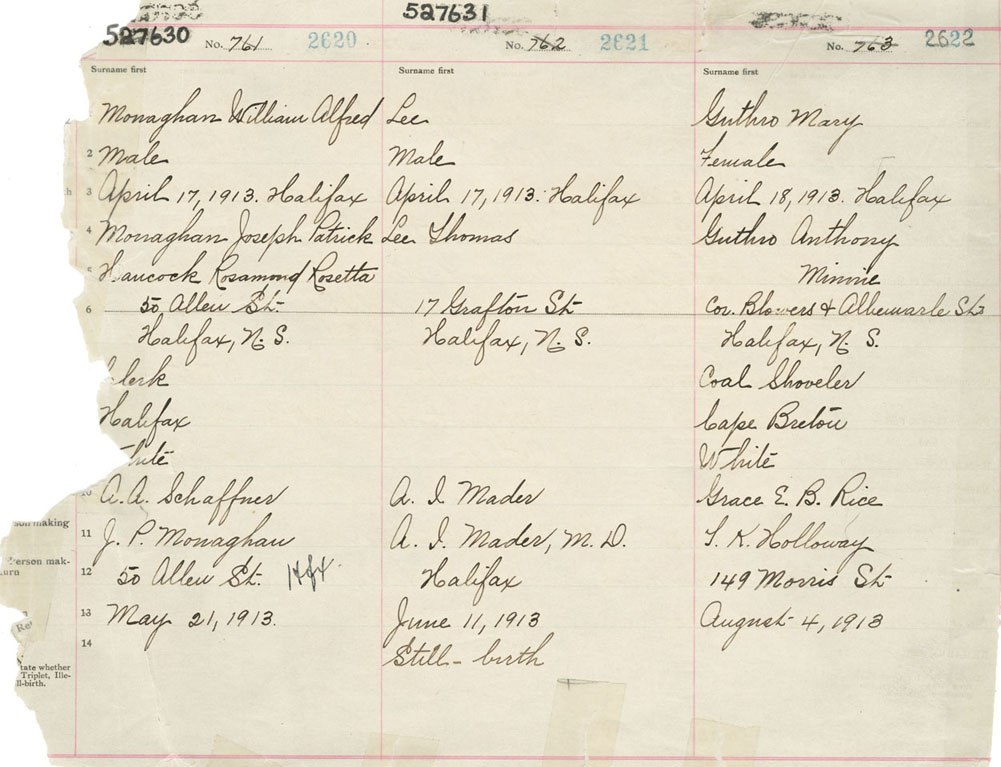 527630 No. 761 2620
527631 No. 762 2621
No. 763 2622
Surname first Surname first Surname first
Monaghan William Alfred Lee Guthro Mary
2 Male Male Female
3 April 17, 1913. Halifax April 17, 1913. Halifax April 18, 1913. Halifax
4 Monaghan Joseph Patrick Lee Thomas Guthro Anthony
Hancock Rosamond Rosetta Minnie
6 50 Allen St. 17 Grafton St. Cor. Blowers & Albemarle Sts
Halifax, N. S. Halifax, N. S. Halifax, N. S.
Clerk Coal Shoveler
Halifax Cape Breton
White White
10 A. A. Schaffner A. I. Mader Grace E. B. Rice
son making
11 J. P. Monaghan A. I. Mader, M. D. S. K. Holloway
Person mak-
turn
12 50 Allen St. Hfx. Halifax 149 Morris St.
13 May 21, 1913. June 11, 1913 August 4, 1913
Re
14 Still-birth
tate whether
Triplet, Ille-
ll-birth.